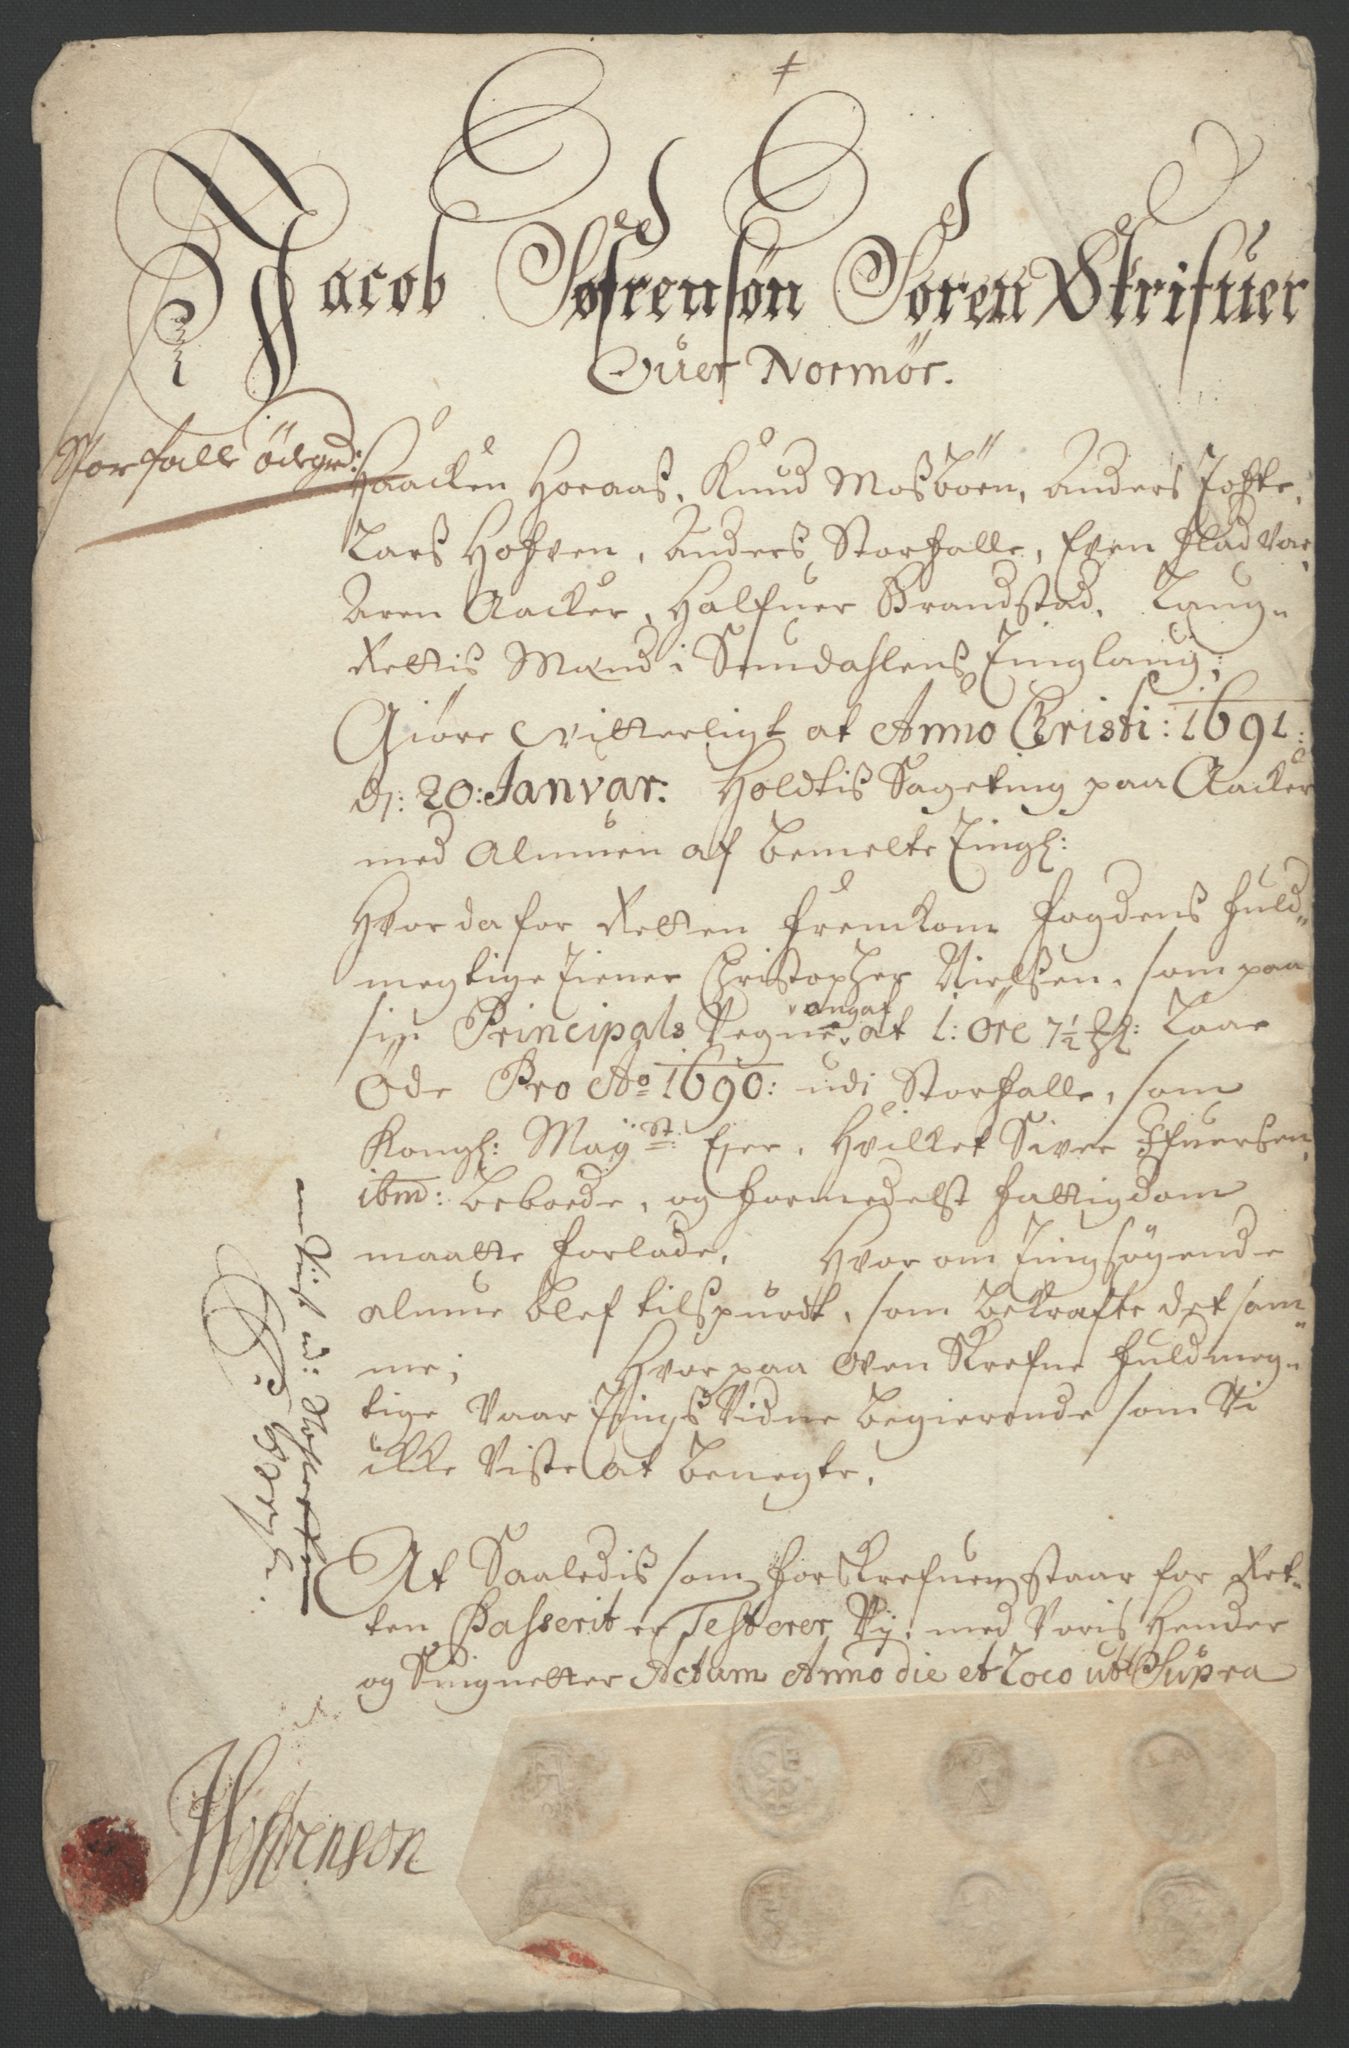 Jacob Søfrensøn Soren Skrifuer
Ofuer Normör.
Storfalle ödegrd:
Haacken Horaas, Knud Mossböen, Anders Jofste,
Lars Hofven, Anders Storfalle, Even Fladvar,
Aren Aacker, Halfuer Brandstad, Laug-
Rettis Mænd i Sundahlens Tinglaug;
Giöre Vitterligt at Anno Christi: 1691:
dj: 20: Janvar: Holdtis Sageting paa Aacker
med Almuen af bemelte Tingl:
Hvor da for Retten fremkom fogdens fuld-
megtige Tiener Christopher Nielsen, som paa
sin Principals Vegne angaf at 1: Öre 7½ Laae
Öde Pro Ao 1690: udi Storfalle, som
Kongl: Mayst: Ejer, Hvilket Siver Ifuersen
ibm: beboede, og formedelst fattigdom
maatte forlade, Hvor om Tingsögende
almue blef tilspurdt, som bekrafte det sam-
me; Hvor paa oven Skrefne fuldmeg-
tige Vaar Tings Vidne begierende som Vi
ikke Viste at benegte,
At Saaledis som forskrefuen staar for Ret-
ten Passerit er Testerer Vij med Voris Hender
og Signetter Actum Anno die et Loco ut Supra
JSøfrenson